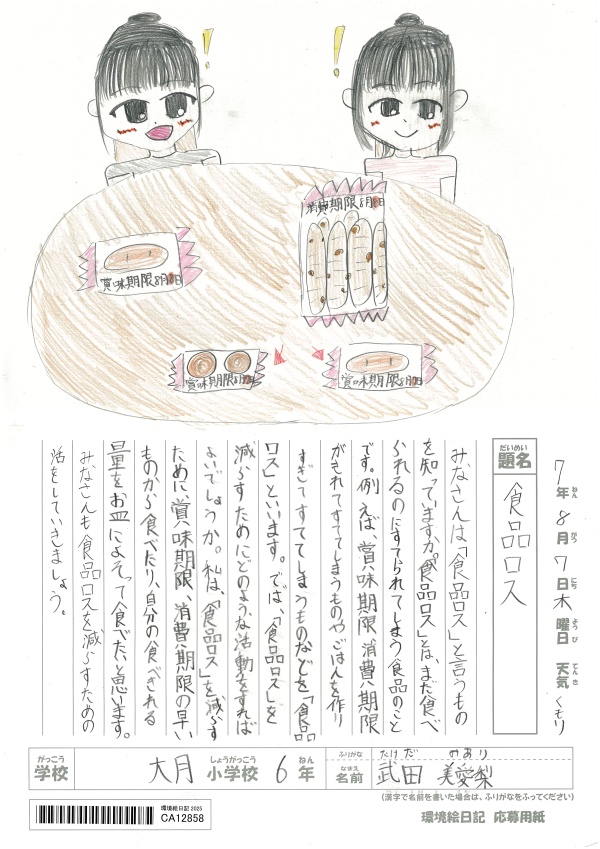 !
!
消費期限8月8日
賞味期限8月8日
賞味期限8月8日
賞味期限8月8日
7年8月7日木曜日 天気くもり
ねん がつ にち ようび てんき
だいめい
題名
食品ロス
みなさんは「食品ロス」と言うもの
を知っていますか。「食品ロス」とは、まだ食べ
られるのにすてられてしまう食品のこと
です。例えば、賞味期限、消費期限
がきれてすててしまうものやごはんを作り
すぎてすててしまうものなどを「食品
ロス」といいます。では、「食品ロス」を
減らすためにどのような活動をすれば
よいでしょうか。私は、「食品ロス」を減らす
ために賞味期限、消費期限の早い
ものから食べたり、自分の食べきれる
量をお皿によそって食べたいと思います。
みなさんも食品ロスを減らすための
活をしていきましょう。
がっこう しょうがっこう ねん
学校 大月 小学校 6年
ふりがな たけだ みおり
なまえ
名前 武田 美愛梨
(漢字で名前を書いた場合は、ふりがなをふってください)
環境絵日記 2025
CA12858
環境絵日記 応募用紙